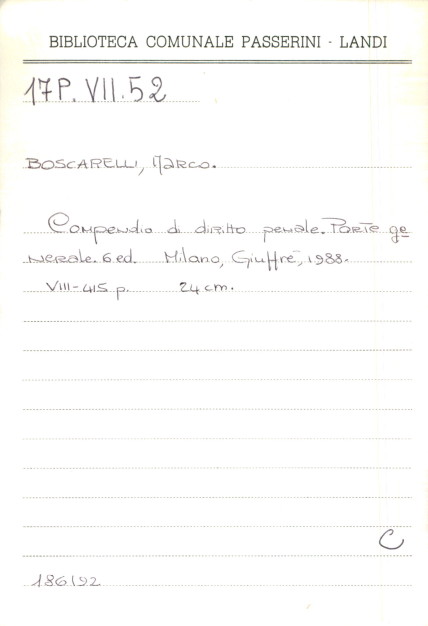 BIBLIOTECA COMUNALE PASSERINI - LANDI
17P. VII. 52
BOSCARELLI, Marco.
Compendio di diritto penale. Parte ge
nerale. 6 ed. Milano, Giuffrè, 1988.
VIII-415 p. 24 cm.
C
186192